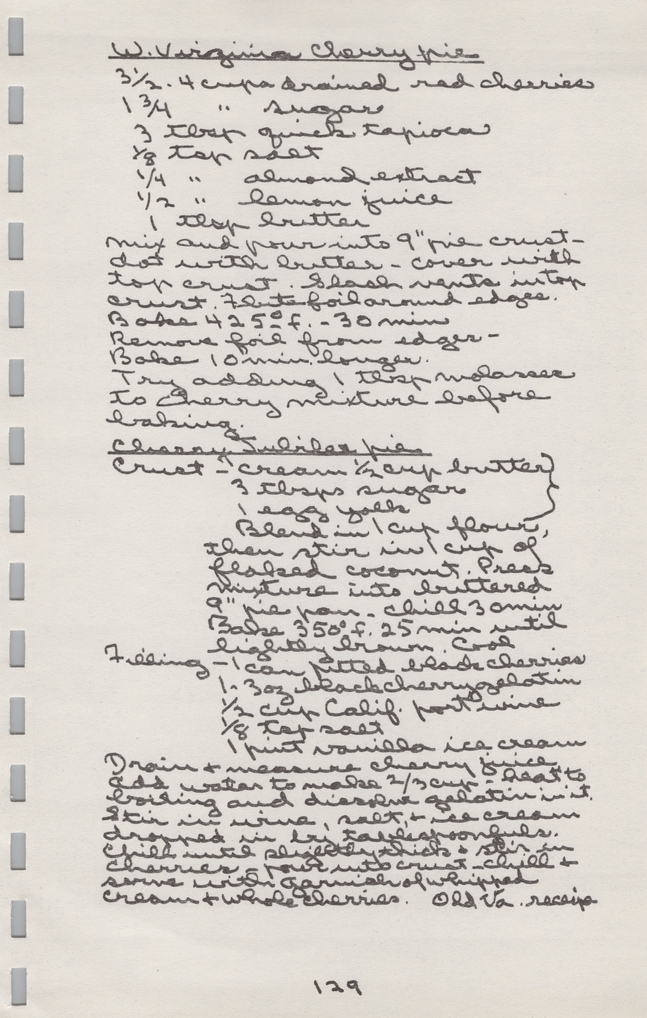 W. Virginia Cherry pie
3 1/2 - 4 cups drained red cherries
1 3/4 " sugar
3 tbsp quick tapioca
1/8 tsp salt
1/4 " almond extract
1/2 " lemon juice
1 tbsp butter
Mix and pour into 9" pie crust -
dot with butter - cover with
top crust. Slash vents in top
crust. Flute foil around edges.
Bake 425° f. - 30 min
Remove foil from edges -
Bake 10 min. longer.
Try adding 1 tbsp molasses
to cherry mixture before
baking.
Cherry Jubilee pie
Crust - cream 1/2 cup butter }
3 tbsps sugar
1 egg yolk
Blend in 1 cup flour,
then stir in 1 cup of
flaked coconut. Press
mixture into buttered
9" pie pan - chill 30 min
Bake 350° f. 25 min until
lightly brown. Cool
Filling - 1 can pitted black cherries
1 - 3 oz black cherry gelatin
1/2 cup Calif. port wine
1/8 tsp salt
1 pint vanilla ice cream
Drain + measure cherry juice,
add water to make 2/3 cup - heat to
boiling and dissolve gelatin in it.
Stir in wine, salt, + ice cream
dropped in by tablespoonfuls.
Chill until slightly thick + stir in
cherries, pour into crust - chill +
serve with garnish of whipped
cream + whole cherries. Old Va. receipe
129